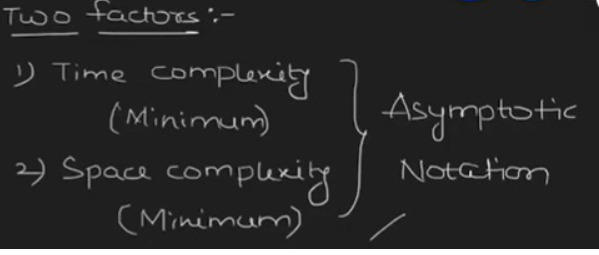 Two factors :-
1) Time complexity
(Minimum)
2) Space complexity
(Minimum)
Asymptotic
Notation